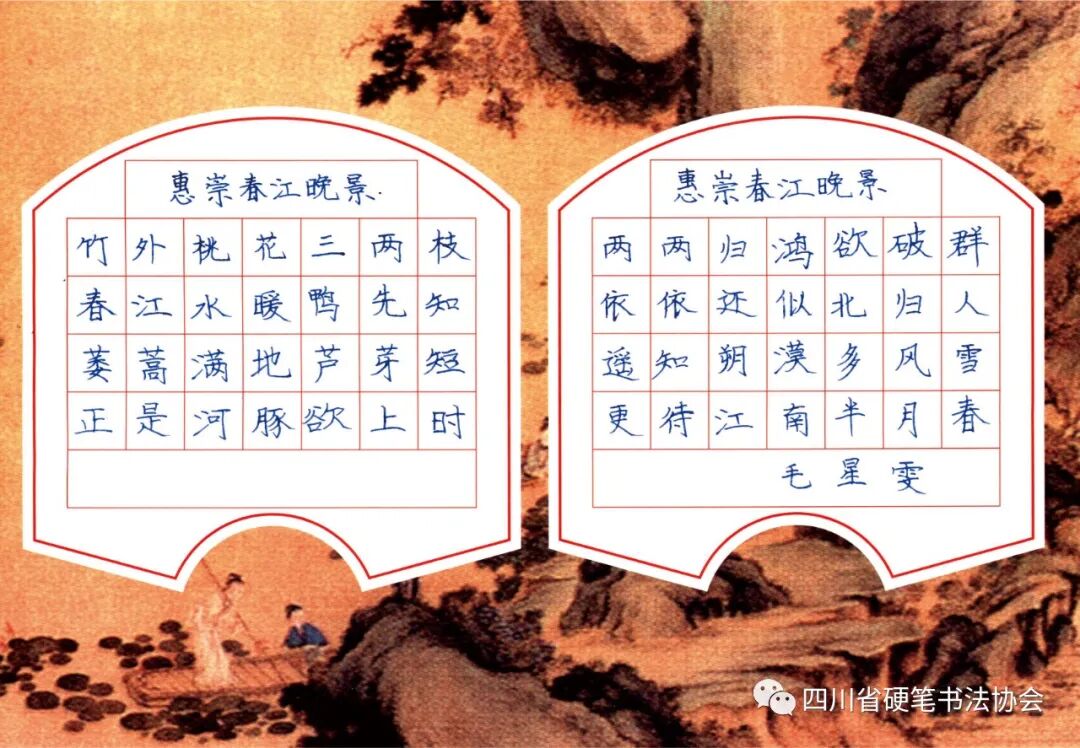 惠崇春江晚景.
竹外桃花三两枝
春江水暖鸭先知
蒌蒿满地芦芽短
正是河豚欲上时
惠崇春江晚景
两两归鸿欲破群
依依还似北归人
遥知朔漠多风雪
更待江南半月春
毛星雯
四川省硬笔书法协会